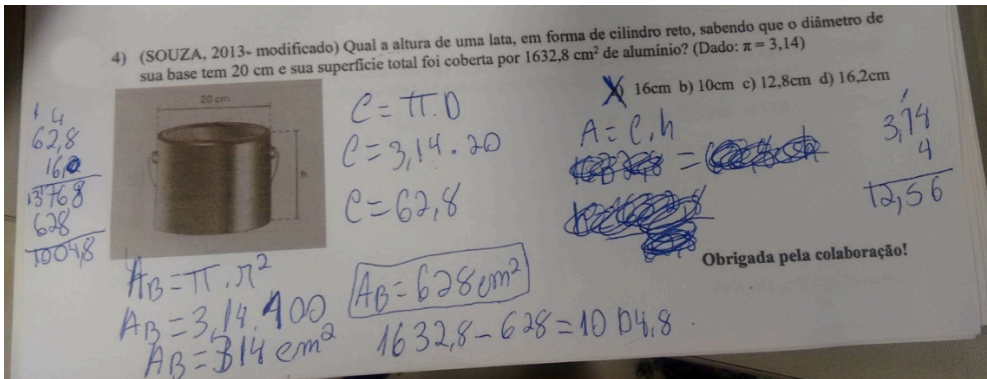 4) (SOUZA, 2013- modificado) Qual a altura de uma lata, em forma de cilindro reto, sabendo que o diâmetro de
sua base tem 20 cm e sua superfície total foi coberta por 1632,8 cm² de alumínio? (Dado: π = 3,14)
16cm b) 10cm c) 12,8cm d) 16,2cm
20 cm
h
1 4
62,8
16,0
13768
628
10048
C = π.D
C = 3,14.20
C = 62,8
A = C.h
3,14
4
12,56
Obrigada pela colaboração!
AB = π.r²
AB = 3,14.100
AB = 314 cm²
AB = 628 cm²
1632,8 - 628 = 1004,8